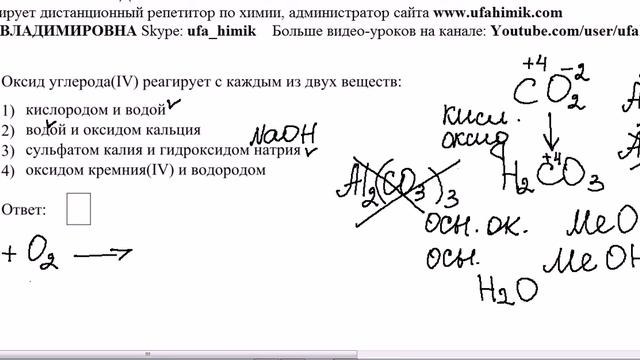 ирует дистанционный репетитор по химии, администратор сайта www.ufahimik.com
ВЛАДИМИРОВНА Skype: ufa_himik Больше видео-уроков на канале: Youtube.com/user/ufa
Оксид углерода(IV) реагирует с каждым из двух веществ:
1) кислородом и водой
2) водой и оксидом кальция
3) сульфатом калия и гидроксидом натрия
4) оксидом кремния(IV) и водородом
Ответ:
NaOH
+4 -2
CO2
кисл.
оксид
+4
H2CO3
Al2(CO3)3
осн. ок. MeO
осн. MeOH
H2O
+ O2